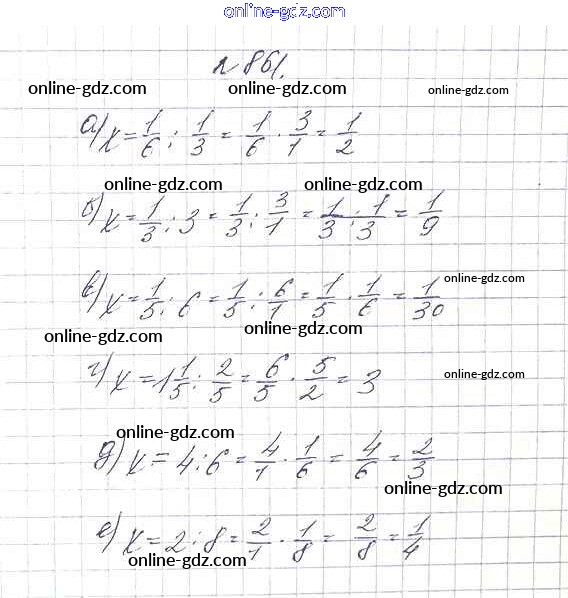 online-gdz.com
№ 861.
online-gdz.com online-gdz.com online-gdz.com
а) x = 1/6 : 1/3 = 1/6 · 3/1 = 1/2
online-gdz.com online-gdz.com
б) x = 1/3 : 3 = 1/3 : 3/1 = 1/3 · 1/3 = 1/9
online-gdz.com
в) x = 1/5 : 6 = 1/5 : 6/1 = 1/5 · 1/6 = 1/30
online-gdz.com online-gdz.com
г) x = 1 1/5 : 2/5 = 6/5 · 5/2 = 3
online-gdz.com
online-gdz.com
д) x = 4 : 6 = 4/1 · 1/6 = 4/6 = 2/3
online-gdz.com
е) x = 2 : 8 = 2/1 · 1/8 = 2/8 = 1/4
online-gdz.com